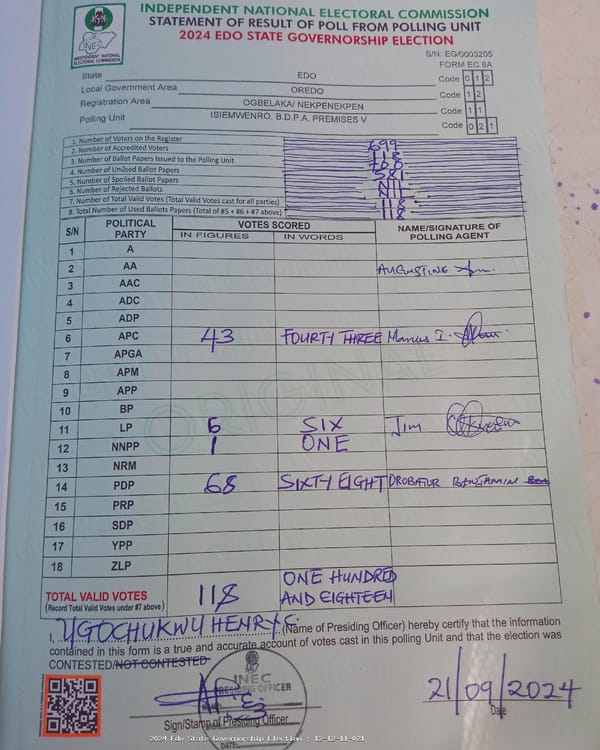 INEC
INDEPENDENT NATIONAL
ELECTORAL COMMISSION
INDEPENDENT NATIONAL ELECTORAL COMMISSION
STATEMENT OF RESULT OF POLL FROM POLLING UNIT
2024 EDO STATE GOVERNORSHIP ELECTION
S/N: EG/0003205
FORM EC 8A
State EDO Code 0 1 2
Local Government Area OREDO Code 1 2
Registration Area OGBELAKA/ NEKPENEKPEN Code 1 1
Polling Unit ISIEMWENRO, B.D.P.A. PREMISES V Code 0 2 1
1. Number of Voters on the Register 699
2. Number of Accredited Voters 118
3. Number of Ballot Papers Issued to the Polling Unit 700
4. Number of Unused Ballot Papers 581
5. Number of Spoiled Ballot Papers NIL
6. Number of Rejected Ballots NIL
7. Number of Total Valid Votes (Total Valid Votes cast for all parties) 118
8. Total Number of Used Ballots Papers (Total of #5 + #6 + #7 above) 118
S/N POLITICAL PARTY VOTES SCORED NAME/SIGNATURE OF POLLING AGENT
IN FIGURES IN WORDS
1 A
2 AA AUGUSTINE
3 AAC
4 ADC
5 ADP
6 APC 43 FOURTY THREE Marcus I.
7 APGA
8 APM
9 APP
10 BP
11 LP 6 SIX Jim
12 NNPP 1 ONE
13 NRM
14 PDP 68 SIXTY EIGHT BENJAMIN
15 PRP
16 SDP
17 YPP
18 ZLP
TOTAL VALID VOTES 118 ONE HUNDRED
(Record Total Valid Votes under #7 above) AND EIGHTEEN
I, UGOCHUKWU HENRY C. (Name of Presiding Officer) hereby certify that the information
contained in this form is a true and accurate account of votes cast in this polling Unit and that the election was
CONTESTED/NOT CONTESTED
INEC
PRESIDING OFFICER
21/09/2024
Sign/Stamp of Presiding Officer Date
DATE:
ORIGINAL
2024 Edo State Governorship Election : 12-12-11-021